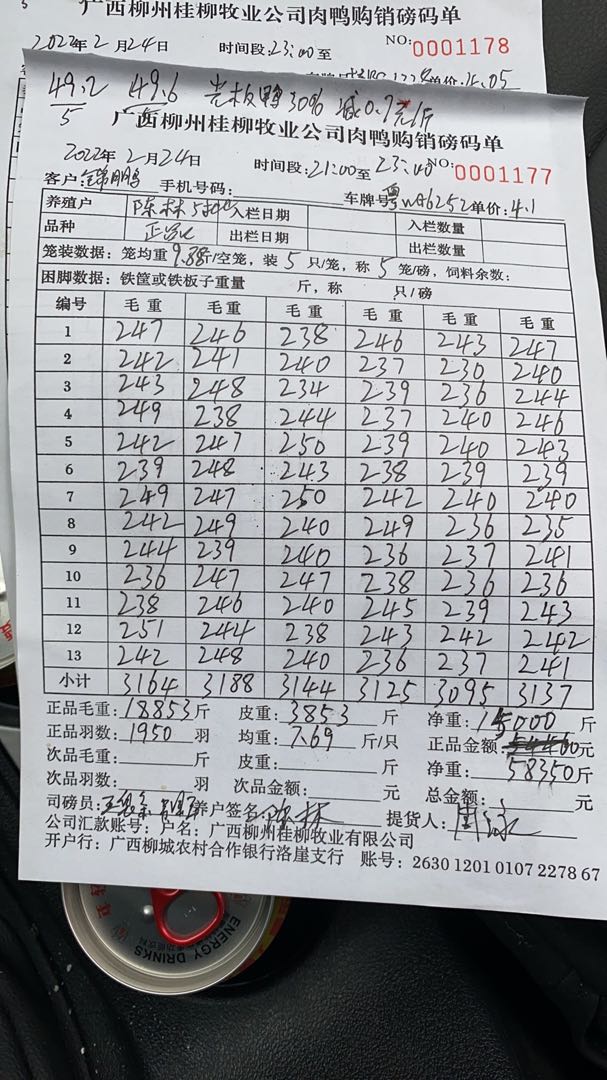 广西柳州桂柳牧业公司肉鸭购销磅码单
2022年2月24日 时间段:23:00至 NO:0001178
49.2/5 49.6 老板鸭30% 减0.7元/斤
广西柳州桂柳牧业公司肉鸭购销磅码单
2022年2月24日 时间段:21:00至23:40 NO:0001177
客户: 手机号码: 车牌号:粤WA6252 单价:4.1
养殖户 陈林 入栏日期 入栏数量
品种 出栏日期 出栏数量
笼装数据:笼均重9.88斤/空笼,装5只/笼,称5笼/磅,饲料余数:
困脚数据:铁筐或铁板子重量 斤,称 只/磅
编号 毛重 毛重 毛重 毛重 毛重 毛重
1 247 246 238 246 243 247
2 242 241 240 237 230 240
3 243 248 234 239 236 244
4 249 238 244 237 240 246
5 242 247 250 239 240 243
6 239 248 243 238 239 239
7 249 247 250 242 240 240
8 242 249 240 249 236 235
9 244 239 240 236 237 241
10 236 247 247 238 236 236
11 238 246 240 245 239 243
12 251 244 238 243 242 242
13 242 248 240 236 237 241
小计 3164 3188 3144 3125 3095 3137
正品毛重:18853斤 皮重:3853斤 净重:15000斤
正品羽数:1950羽 均重:7.69斤/只 正品金额: 元
次品毛重: 斤 皮重: 斤 净重:58350斤
次品羽数: 羽 次品金额: 元 总金额: 元
司磅员: 养户签名:陈林 提货人:
公司汇款账号:户名:广西柳州桂柳牧业有限公司
开户行:广西柳城农村合作银行洛崖支行 账号:2630 1201 0107 2278 67
ENERGY DRINKS